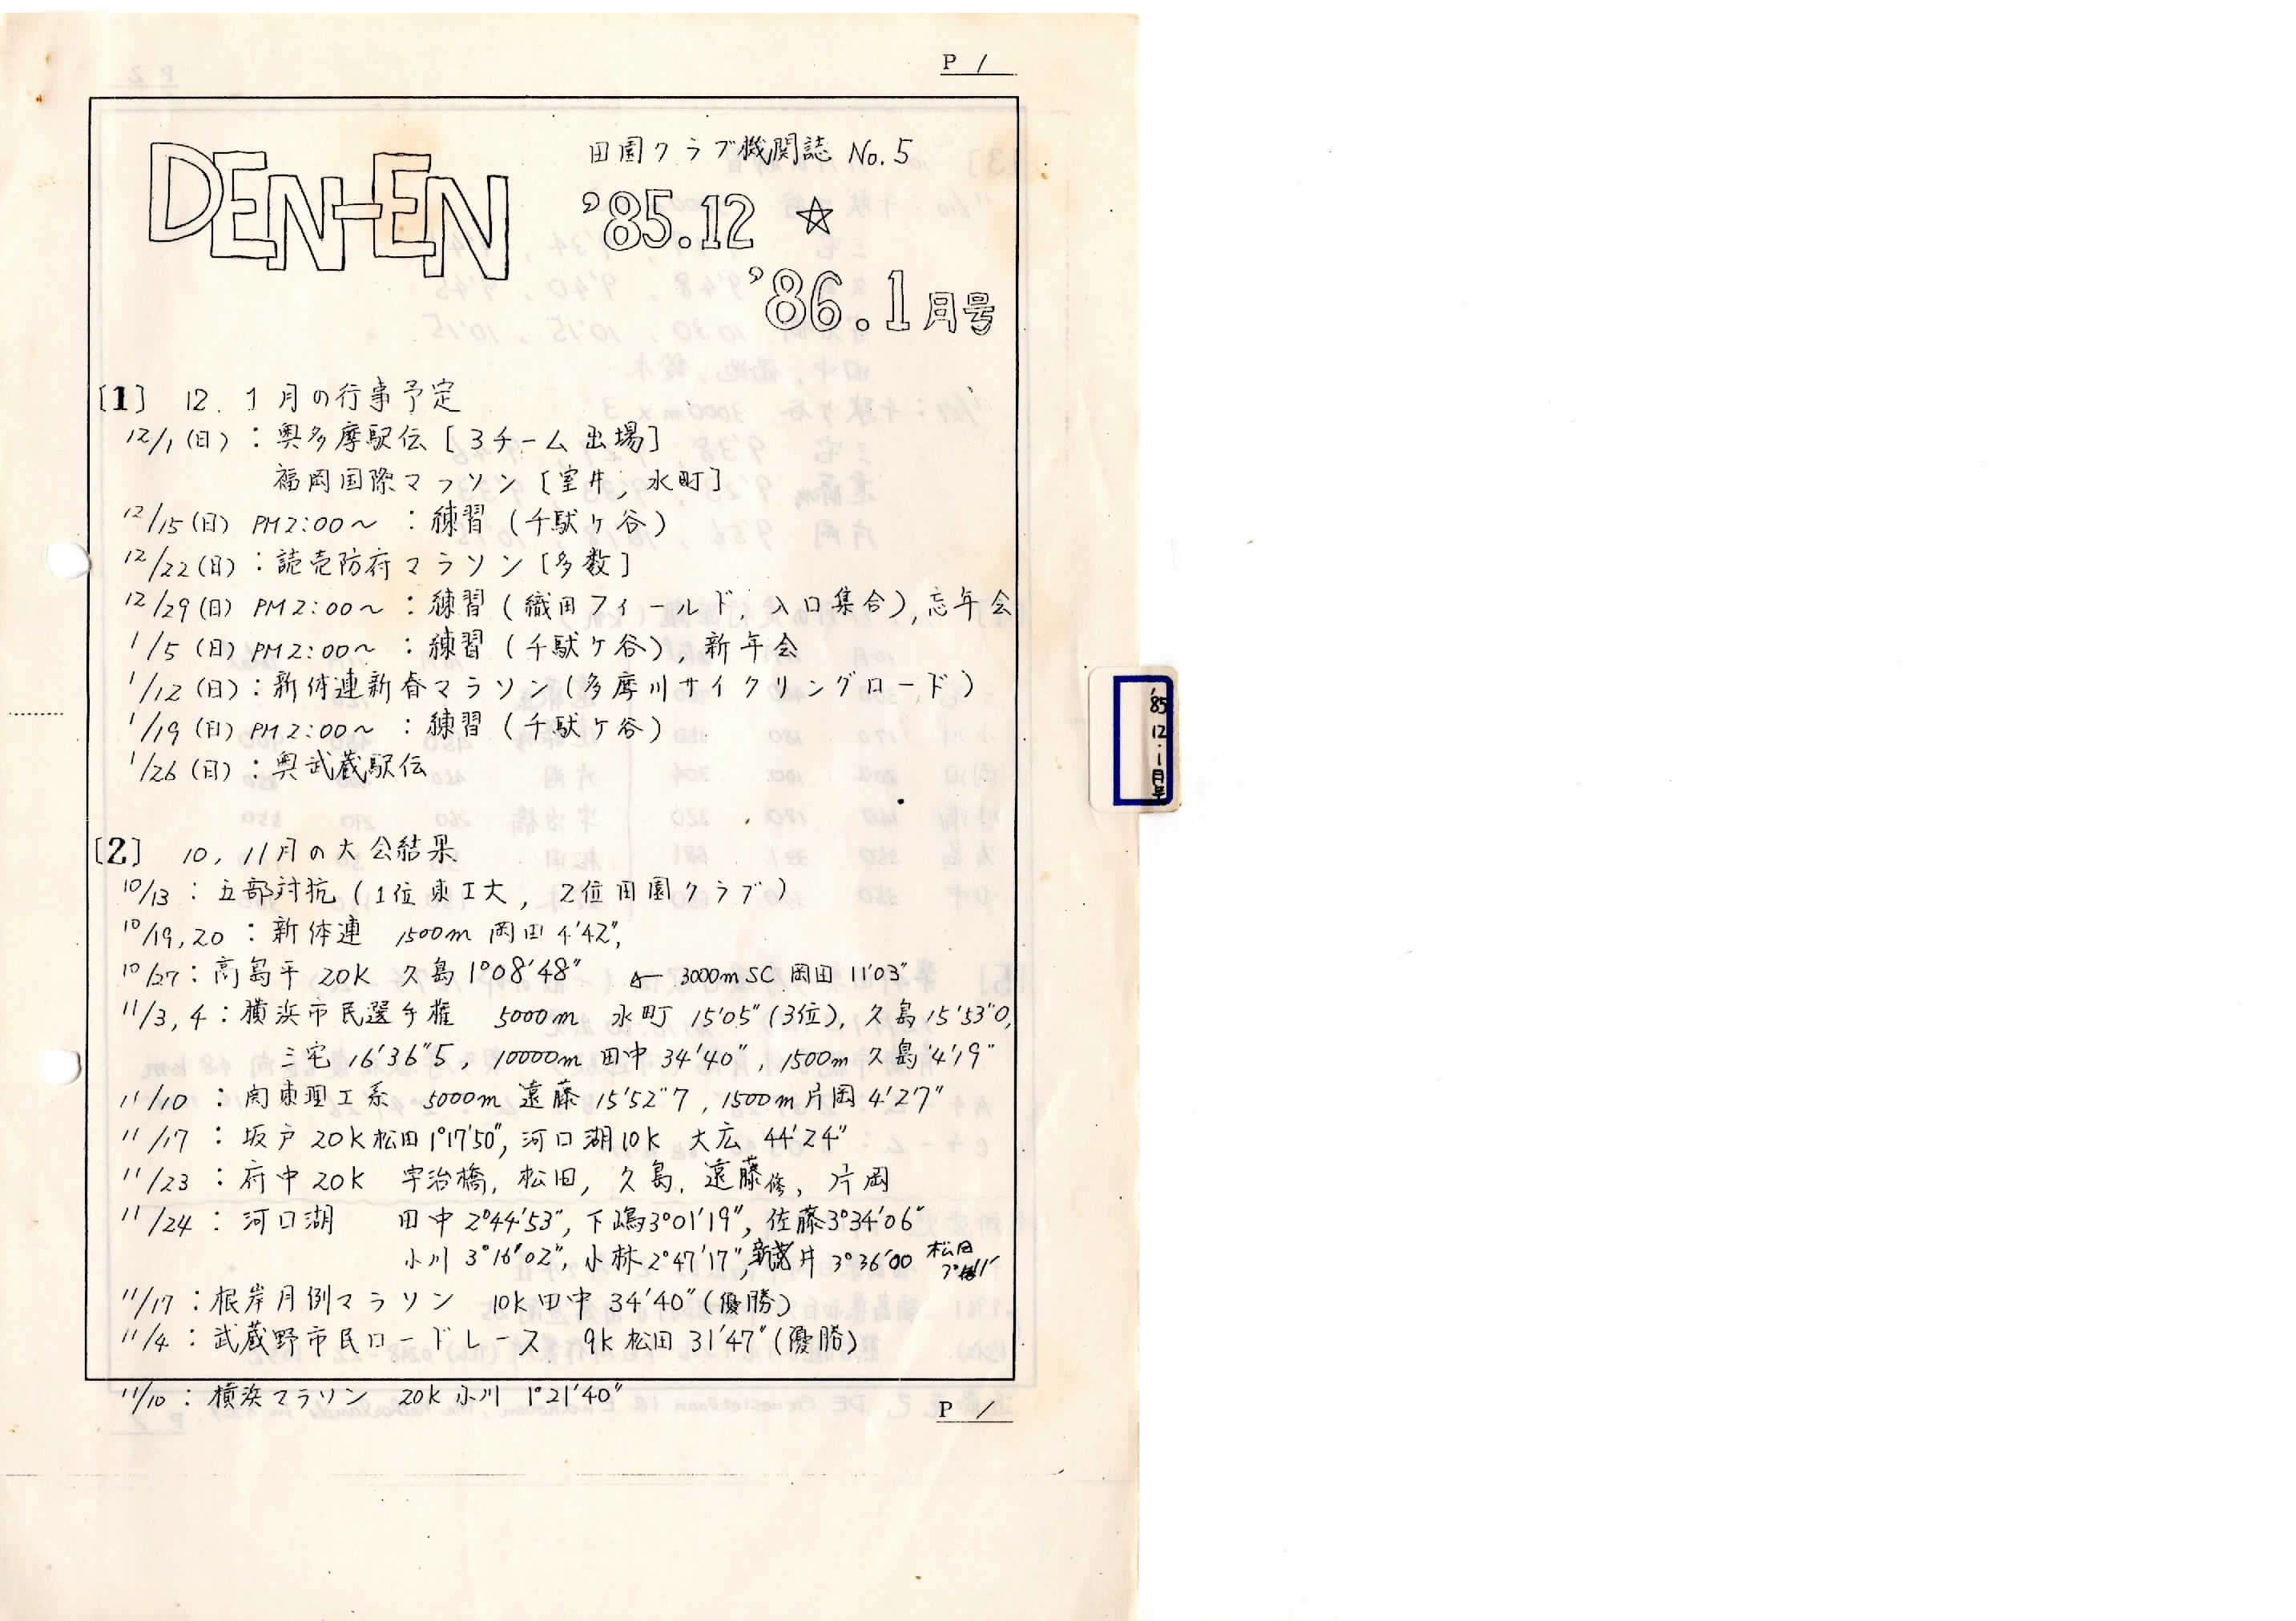 P 1
DEN-EN
田園クラブ機関誌 No.5
'85.12 ☆
'86.1月号
[1] 12.1月の行事予定
12/1(日):奥多摩駅伝[3チーム出場]
福岡国際マラソン[室井,水町]
12/15(日) PM2:00〜 :練習(千駄ケ谷)
12/22(日):読売防府マラソン[多数]
12/29(日) PM2:00〜 :練習(織田フィールド,入口集合),忘年会
1/5(日) PM2:00〜 :練習(千駄ケ谷),新年会
1/12(日):新体連新春マラソン(多摩川サイクリングロード)
1/19(日) PM2:00〜 :練習(千駄ケ谷)
1/26(日):奥武蔵駅伝
[2] 10,11月の大会結果
10/13:五部対抗(1位東工大,2位田園クラブ)
10/19,20:新体連 1500m 岡田 4'42",
10/27:高島平 20K 久島 1°08'48" ← 3000mSC 岡田 11'03"
11/3,4:横浜市民選手権 5000m 水町 15'05"(3位),久島 15'53"0,
三宅 16'36"5, 10000m 田中 34'40", 1500m 久島 4'19"
11/10:関東理工系 5000m 遠藤 15'52"7, 1500m 片岡 4'27"
11/17:坂戸 20K 松田 1°17'50", 河口湖10K 大広 44'24"
11/23:府中20K 宇治橋,松田,久島,遠藤修,片岡
11/24:河口湖 田中 2°44'53", 下嶋3°01'19", 佐藤3°34'06"
小川 3°16'02", 小林 2°47'17", 井 3°36'00 松田
11/17:根岸月例マラソン 10K 田中 34'40"(優勝)
11/4:武蔵野市民ロードレース 9K 松田 31'47"(優勝)
11/10:横浜マラソン 20K 小川 1°21'40"
P 1
'85 12・1月号